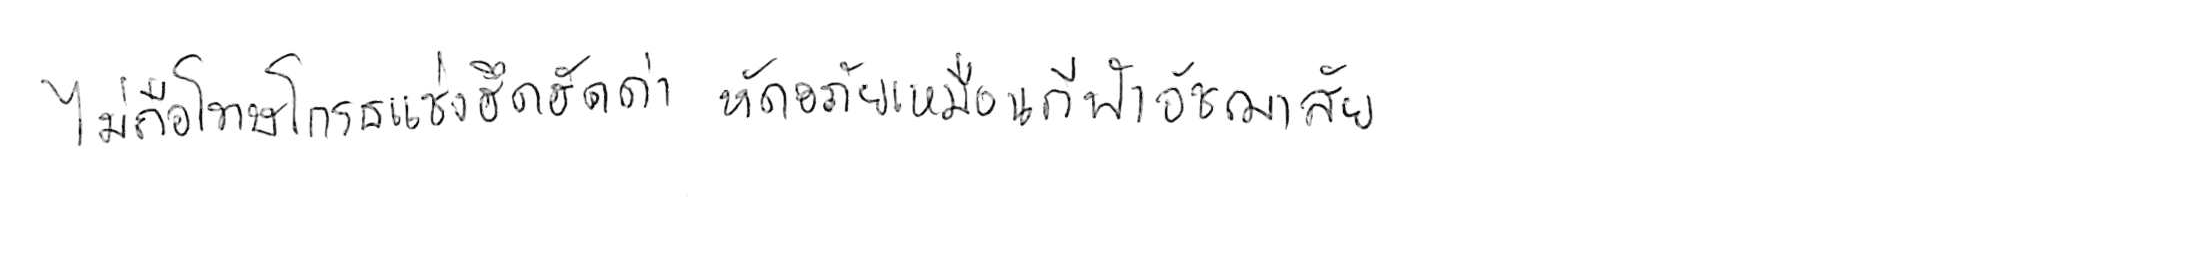 ไม่ถือโทษโกรธแช่งฮึดฮัดด่า หัดอภัยเหมือนกีฬาอัชฌาสัย